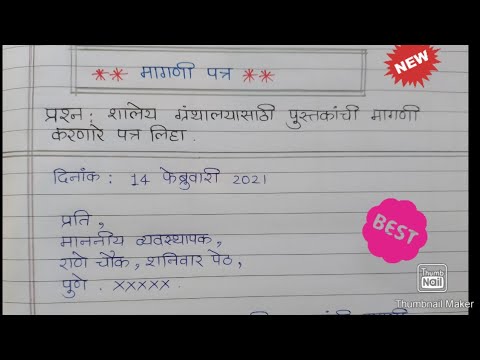 ** मागणी पत्र **
NEW
प्रश्न : शालेय ग्रंथालयासाठी पुस्तकांची मागणी
करणारे पत्र लिहा .
दिनांक : 14 फेब्रुवारी 2021
प्रति ,
माननीय व्यवस्थापक ,
राणे चौक , शनिवार पेठ ,
पुणे . xxxxx .
BEST
Thumb
Nail
Thumbnail Maker